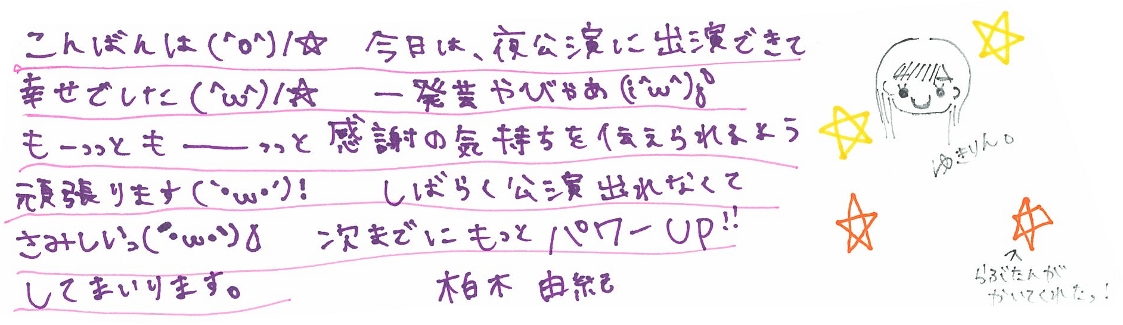 こんばんは(^o^)/☆ 今日は、夜公演に出演できて
幸せでした(^ω^)/☆ 一発芸やびゃあ(i^ω^)♪
もーっっとも――っっと感謝の気持ちを伝えられるよう
頑張ります(`・ω・´)! しばらく公演出れなくて
さみしいっ(´・ω・`)♪ 次までにもっとパワーUP!!
してまいります。 柏木 由紀
ゆきりん。
らぶたんが
かいてくれたっ!